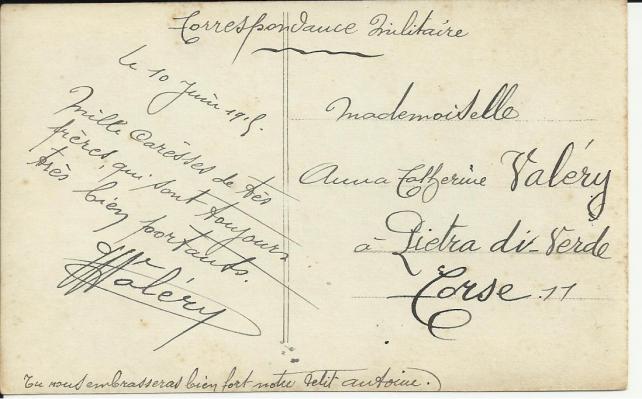 Correspondance Militaire
le 10 Juin 1915.
Mille Caresses de tes
frères, qui sont toujours
très bien portants.
Valéry
Mademoiselle
Anna Catherine Valéry
à Pietra di-Verde
Corse. 11
Tu nous embrasseras bien fort notre Petit antoine.